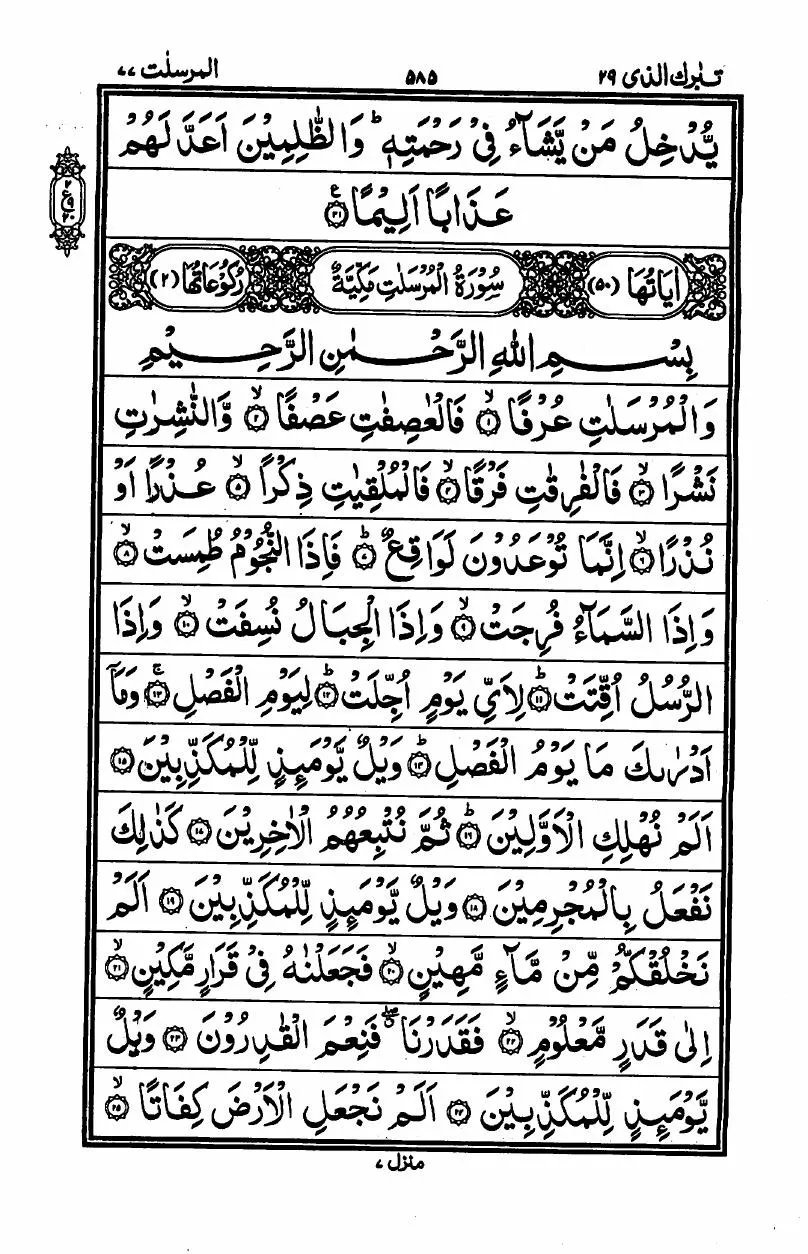 تبٰرك الذی ۲۹
۵۸۵
المرسلٰت ۷۷
يُّدْخِلُ مَنْ يَّشَآءُ فِيْ رَحْمَتِهٖ ؕ وَالظّٰلِمِيْنَ اَعَدَّ لَهُمْ
عَذَابًا اَلِيْمًا ﴿۳۱﴾ ع
اٰيَاتُهَا (۵۰) سُوْرَةُ الْمُرْسَلٰتِ مَكِّيَّةٌ رُكُوْعَاتُهَا (۲)
بِسْمِ اللهِ الرَّحْمٰنِ الرَّحِيْمِ
وَالْمُرْسَلٰتِ عُرْفًا ﴿۱﴾ۙ فَالْعٰصِفٰتِ عَصْفًا ﴿۲﴾ۙ وَّالنّٰشِرٰتِ
نَشْرًا ﴿۳﴾ۙ فَالْفٰرِقٰتِ فَرْقًا ﴿۴﴾ۙ فَالْمُلْقِيٰتِ ذِكْرًا ﴿۵﴾ۙ عُذْرًا اَوْ
نُذْرًا ﴿۶﴾ۙ اِنَّمَا تُوْعَدُوْنَ لَوَاقِعٌ ﴿۷﴾ؕ فَاِذَا النُّجُوْمُ طُمِسَتْ ﴿۸﴾ۙ
وَاِذَا السَّمَآءُ فُرِجَتْ ﴿۹﴾ۙ وَاِذَا الْجِبَالُ نُسِفَتْ ﴿۱۰﴾ۙ وَاِذَا
الرُّسُلُ اُقِّتَتْ ﴿۱۱﴾ؕ لِاَيِّ يَوْمٍ اُجِّلَتْ ﴿۱۲﴾ؕ لِيَوْمِ الْفَصْلِ ﴿۱۳﴾ۚ وَمَآ
اَدْرٰىكَ مَا يَوْمُ الْفَصْلِ ﴿۱۴﴾ؕ وَيْلٌ يَّوْمَئِذٍ لِّلْمُكَذِّبِيْنَ ﴿۱۵﴾
اَلَمْ نُهْلِكِ الْاَوَّلِيْنَ ﴿۱۶﴾ؕ ثُمَّ نُتْبِعُهُمُ الْاٰخِرِيْنَ ﴿۱۷﴾ كَذٰلِكَ
نَفْعَلُ بِالْمُجْرِمِيْنَ ﴿۱۸﴾ وَيْلٌ يَّوْمَئِذٍ لِّلْمُكَذِّبِيْنَ ﴿۱۹﴾ اَلَمْ
نَخْلُقْكُّمْ مِّنْ مَّآءٍ مَّهِيْنٍ ﴿۲۰﴾ۙ فَجَعَلْنٰهُ فِيْ قَرَارٍ مَّكِيْنٍ ﴿۲۱﴾ۙ
اِلٰى قَدَرٍ مَّعْلُوْمٍ ﴿۲۲﴾ۙ فَقَدَرْنَا ۖ فَنِعْمَ الْقٰدِرُوْنَ ﴿۲۳﴾ وَيْلٌ
يَّوْمَئِذٍ لِّلْمُكَذِّبِيْنَ ﴿۲۴﴾ اَلَمْ نَجْعَلِ الْاَرْضَ كِفَاتًا ﴿۲۵﴾ۙ
منزل ۷